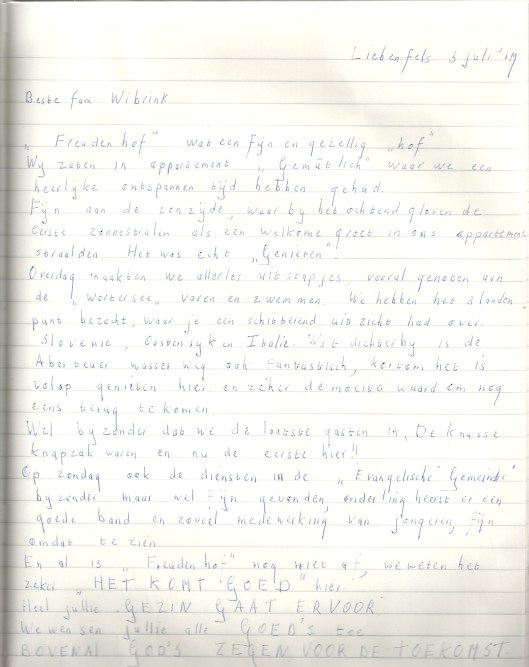 Liebenfels 3 juli '19
Beste fam Wibrink
„Freudenhof" wat een fijn en gezellig „hof"
Wij zaten in appartement „Gemütlich" waar we een
heerlijke ontspannen tijd hebben gehad.
Fijn aan de zonzijde, waar bij het ochtend gloren de
eerste zonnestralen als een welkome groet in ons appartement
straalden. Het was echt „Genieten".
Overdag maakten we allerlei uitstapjes, vooral genoten van
de „Wörtersee" varen en zwemmen. We hebben het 3 landen
punt bezocht, waar je een schitterend uitzicht had over
Slovenië, Oostenrijk en Italië. Wat dichterby is de
Abenteuer wasser weg ook fantastisch, kortom het is
volop genieten hier en zeker de moeite waard om nog
eens terug te komen.
Wel byzonder dat we de laatste gasten in „De Knusse
Knapzak waren en nu de eerste hier!!
Op zondag ook de diensten in de „Evangelische Gemeinde"
byzonder maar wel fijn gevonden, onderling heerst er een
goede band en zoveel medewerking van jongeren, fijn
omdat te zien.
En al is „Freudenhof" nog niet af, we weten het
zeker „HET KOMT GOED" hier
Heel jullie GEZIN GAAT ERVOOR.
We wensen jullie alle GOED'S toe
BOVENAL GOD'S ZEGEN VOOR DE TOEKOMST.